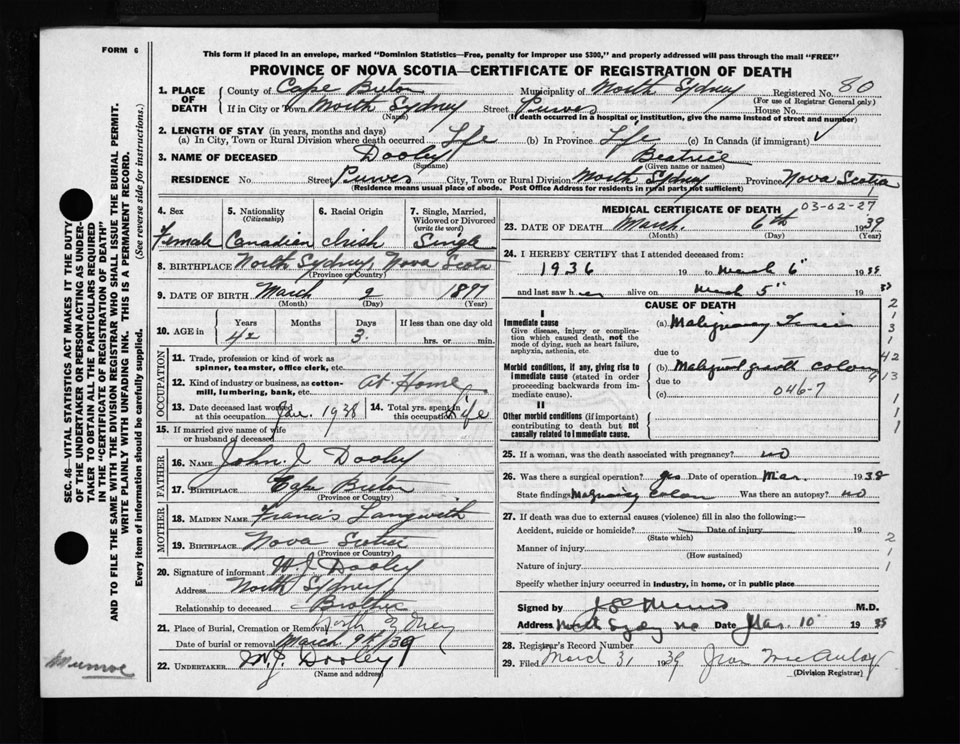 FORM 6
This form if placed in an envelope, marked "Dominion Statistics—Free, penalty for improper use $300," and properly addressed will pass through the mail "FREE"
PROVINCE OF NOVA SCOTIA—CERTIFICATE OF REGISTRATION OF DEATH
SEC. 46—VITAL STATISTICS ACT MAKES IT THE DUTY
OF THE UNDERTAKER OR PERSON ACTING AS UNDER-
TAKER TO OBTAIN ALL THE PARTICULARS REQUIRED
IN THE "CERTIFICATE OF REGISTRATION OF DEATH"
AND TO FILE THE SAME WITH THE DIVISION REGISTRAR WHO SHALL ISSUE THE BURIAL PERMIT.
WRITE PLAINLY WITH UNFADING INK. THIS IS A PERMANENT RECORD.
Every item of information should be carefully supplied. (See reverse side for instructions.)
1. PLACE OF DEATH County of Cape Breton Municipality of North Sydney Registered No. 80
(For use of Registrar General only)
If in City or Town North Sydney Street Purves House No.
(Name) (If death occurred in a hospital or institution, give the name instead of street and number)
2. LENGTH OF STAY (in years, months and days)
(a) In City, Town or Rural Division where death occurred Life (b) In Province Life (c) In Canada (if immigrant)
3. NAME OF DECEASED Dooley Beatrice
(Surname) (Given name or names)
RESIDENCE No. Street Purves City, Town or Rural Division North Sydney Province Nova Scotia
(Residence means usual place of abode. Post Office Address for residents in rural parts not sufficient)
4. Sex 5. Nationality (Citizenship) 6. Racial Origin 7. Single, Married, Widowed or Divorced (write the word)
Female Canadian Irish Single
8. BIRTHPLACE North Sydney, Nova Scotia
(Province or Country)
9. DATE OF BIRTH March 9 1897
(Month) (Day) (Year)
10. AGE in Years Months Days If less than one day old
42 3 hrs. or min.
OCCUPATION
11. Trade, profession or kind of work as spinner, teamster, office clerk, etc.
12. Kind of industry or business, as cotton-mill, lumbering, bank, etc. At Home
13. Date deceased last worked at this occupation Jan. 1938 14. Total yrs. spent in this occupation Life
15. If married give name of wife or husband of deceased
FATHER
16. NAME John J Dooley
17. BIRTHPLACE Cape Breton
(Province or Country)
MOTHER
18. MAIDEN NAME Francis Langwith
19. BIRTHPLACE Nova Scotia
(Province or Country)
20. Signature of informant W. J. Dooley
Address North Sydney
Relationship to deceased Brother
21. Place of Burial, Cremation or Removal North Sydney
Date of burial or removal March 9th/39
22. UNDERTAKER W. J. Dooley
(Name and address)
Munroe
MEDICAL CERTIFICATE OF DEATH 03-02-27
23. DATE OF DEATH March 6th 1939
(Month) (Day) (Year)
24. I HEREBY CERTIFY that I attended deceased from:
1936 19 to March 6" 1939
and last saw her alive on March 5" 19 39
CAUSE OF DEATH
I
Immediate cause
Give disease, injury or complication which caused death, not the mode of dying, such as heart failure, asphyxia, asthenia, etc.
(a) Malignancy
due to
Morbid conditions, if any, giving rise to immediate cause (stated in order proceeding backwards from immediate cause).
(b) Malignant growth colon
due to
(c) 046-7
II
Other morbid conditions (if important) contributing to death but not causally related to immediate cause.
2
1
3
1
42
9 13
1
1
1
25. If a woman, was the death associated with pregnancy? no
26. Was there a surgical operation? yes Date of operation Mar. 1938
State findings Malignancy colon Was there an autopsy? no
27. If death was due to external causes (violence) fill in also the following:—
Accident, suicide or homicide? Date of injury 19
(State which)
Manner of injury
(How sustained)
Nature of injury
2
1
1
Specify whether injury occurred in industry, in home, or in public place
Signed by M.D.
Address North Sydney Date Mar. 10 1939
28. Registrar's Record Number
29. Filed March 31 1939
(Division Registrar)